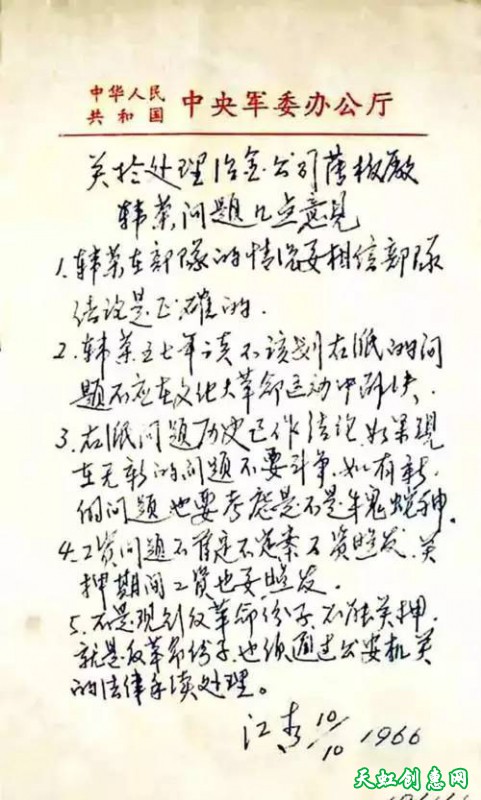 中华人民
共和国 中央军委办公厅
关于处理冶金公司薄板厰
韩荣问题几点意见
1.韩荣在部隊的情况要相信部隊
结论是正确的.
2.韩荣五七年该不该划右派的问
题不应在文化大革命运动中解决.
3.右派问题历史已作结论.如果現
在无新的问题不要斗争.如有新
的问题也要考虑是不是牛鬼蛇神.
4.工资问题不肯定不定案工资照发.关
押期间工资也要照发.
5.不是现刻反革命份子.不能关押.
就是反革命份子.也须通过公安机关
的法律手续处理。
江青 10/10 1966
天虹创惠网